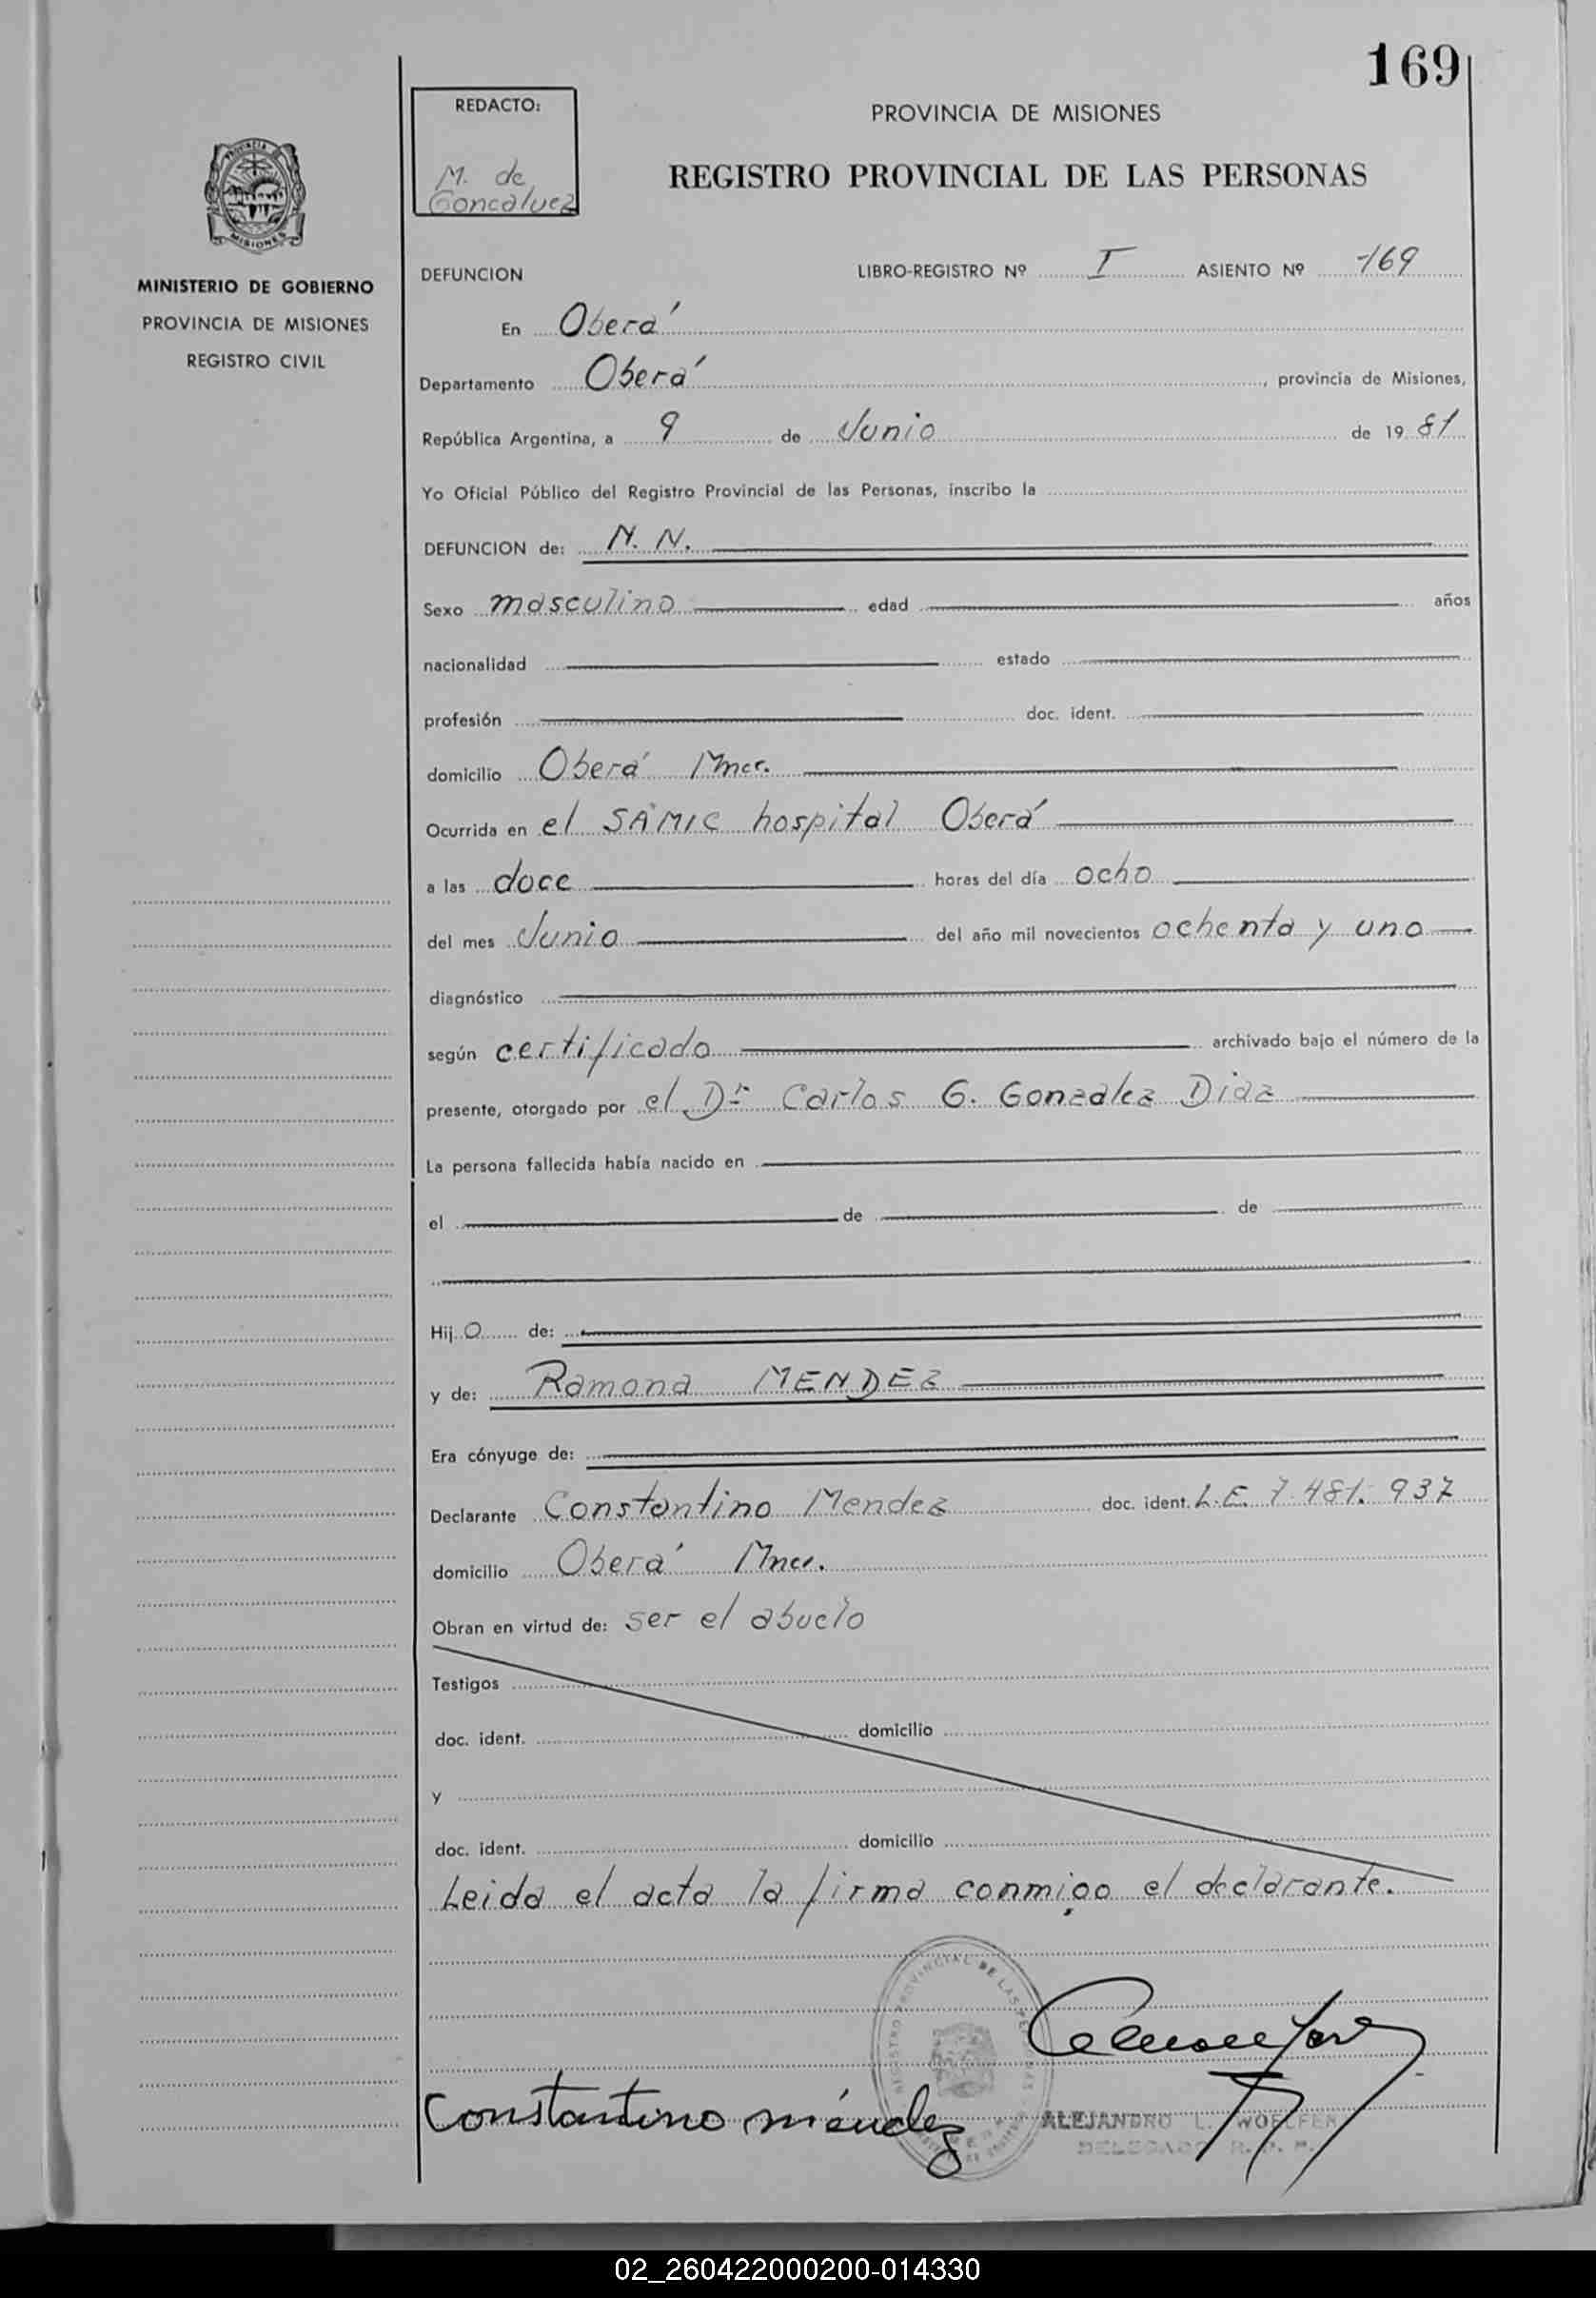 169
REDACTO:
M. de
Goncalvez
PROVINCIA DE MISIONES
REGISTRO PROVINCIAL DE LAS PERSONAS
PROVINCIA
MISIONES
MINISTERIO DE GOBIERNO
PROVINCIA DE MISIONES
REGISTRO CIVIL
DEFUNCION LIBRO-REGISTRO Nº I ASIENTO Nº 169
En Oberá
Departamento Oberá, provincia de Misiones,
República Argentina, a 9 de Junio de 1981
Yo Oficial Público del Registro Provincial de las Personas, inscribo la
DEFUNCION de: N. N.
Sexo masculino edad años
nacionalidad estado
profesión doc. ident.
domicilio Oberá Mnes.
Ocurrida en el SAMIC hospital Oberá
a las doce horas del día ocho
del mes Junio del año mil novecientos ochenta y uno
diagnóstico
según certificado archivado bajo el número de la
presente, otorgado por el Dr Carlos G. Gonzalez Diaz
La persona fallecida había nacido en
el de de
Hijo de:
y de: Ramona MENDEZ
Era cónyuge de:
Declarante Constantino Mendez doc. ident. L.E. 7.481.937
domicilio Oberá Mnes.
Obran en virtud de: ser el abuelo
Testigos
doc. ident. domicilio
y
doc. ident. domicilio
Leida el acta la firma conmigo el declarante.
REGISTRO PROVINCIAL DE LAS
Constantino méndez
ALEJANDRO L. WOELFER
DELEGADO R. P. P.
02_260422000200-014330